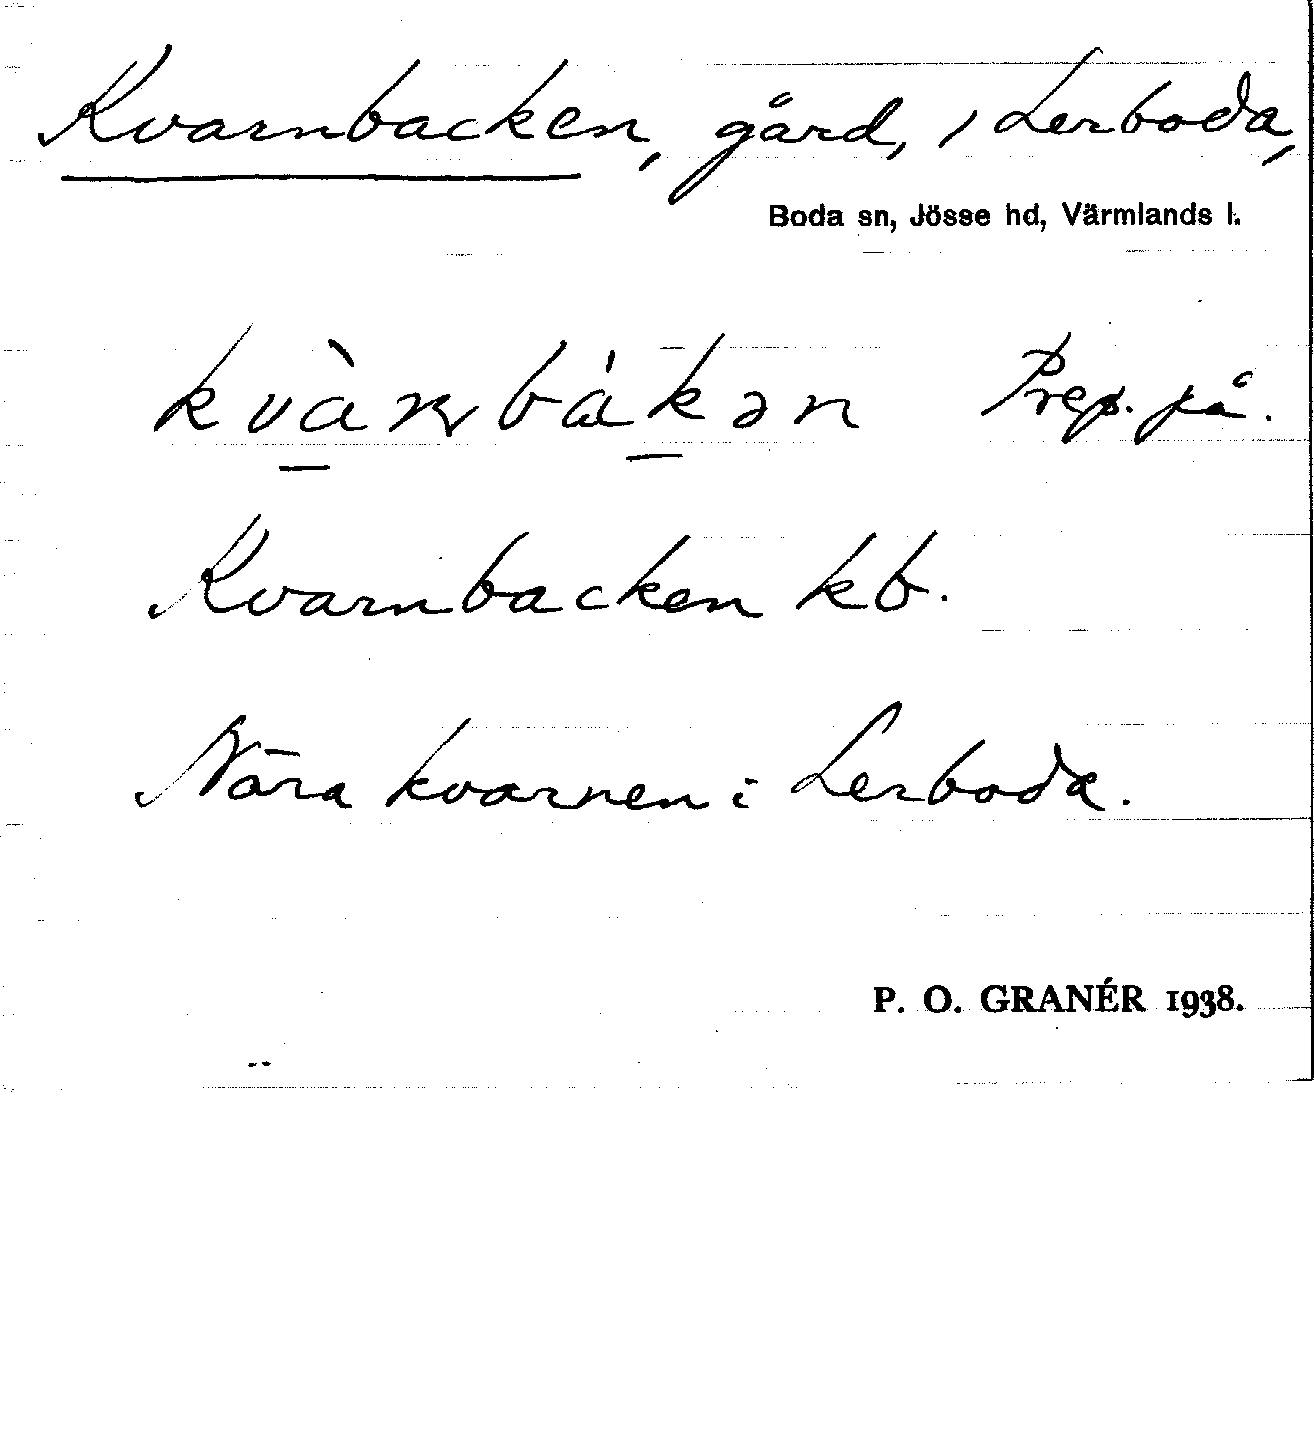 Kvarnbacken, gård, i Lerboda,
Boda sn, Jösse hd, Värmlands l.
kvà̱ɳbá̱kən Prep. på.
Kvarnbacken kb.
Nära kvarnen i Lerboda.
P. O. GRANÉR 1938.